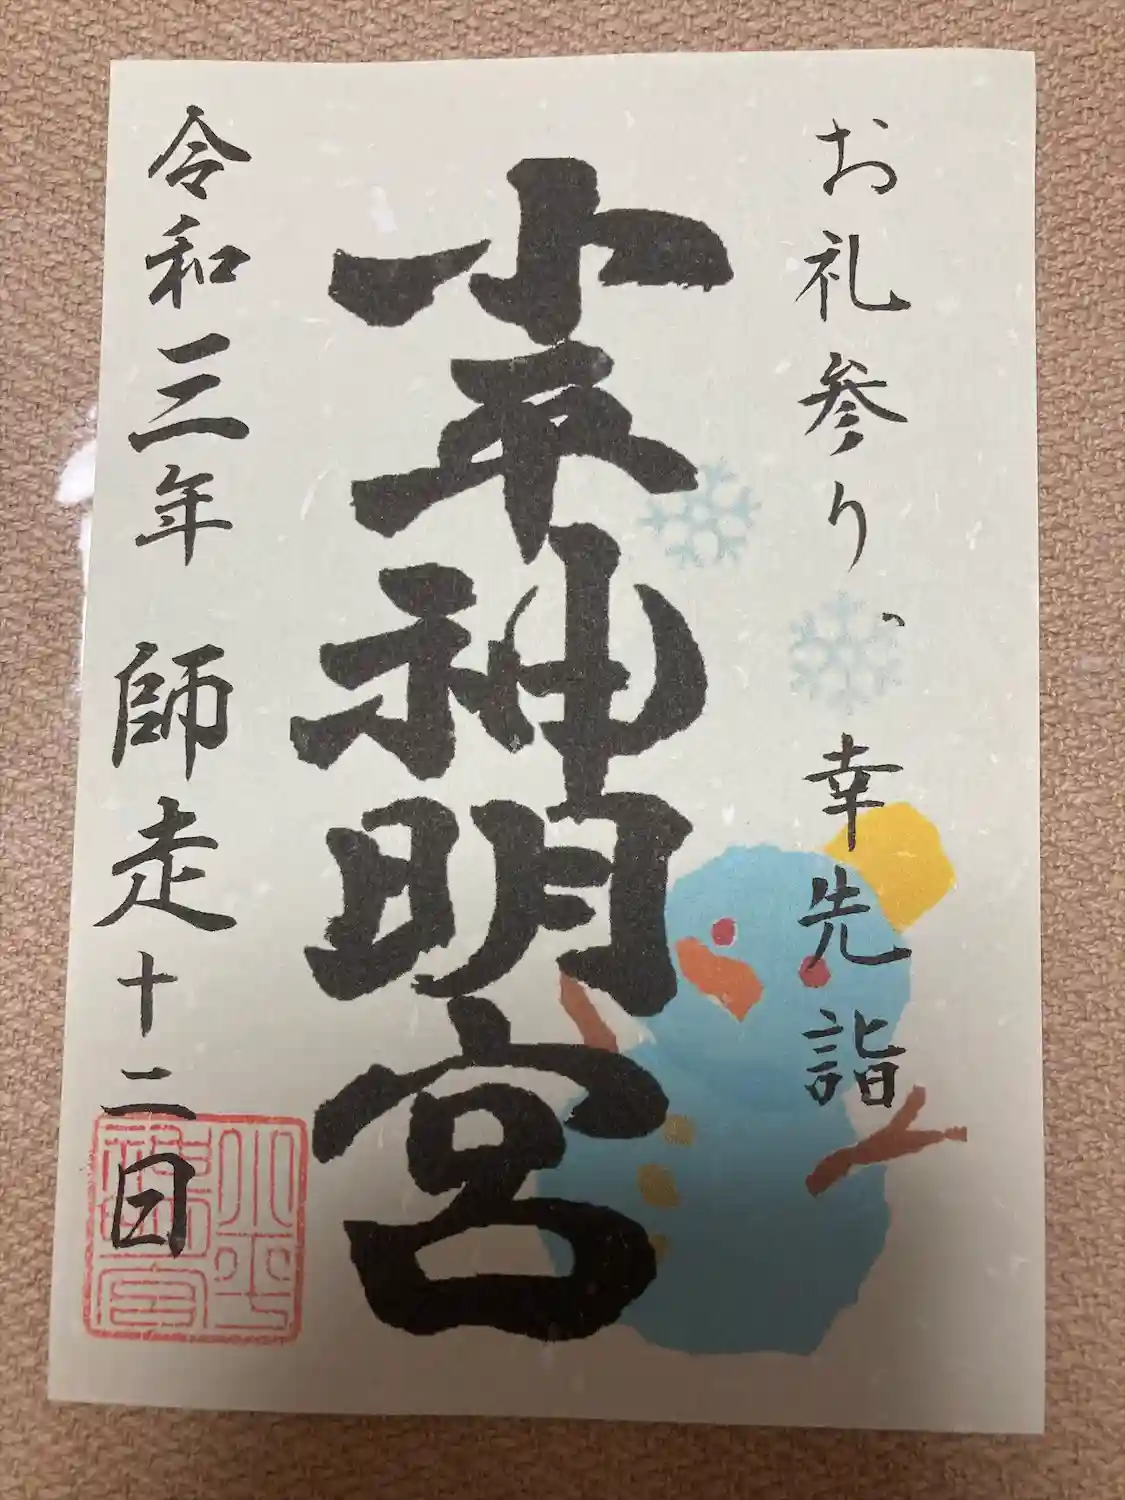 お礼参り、幸先詣
小平神明宮
令和三年 師走十二日
小平神明宮